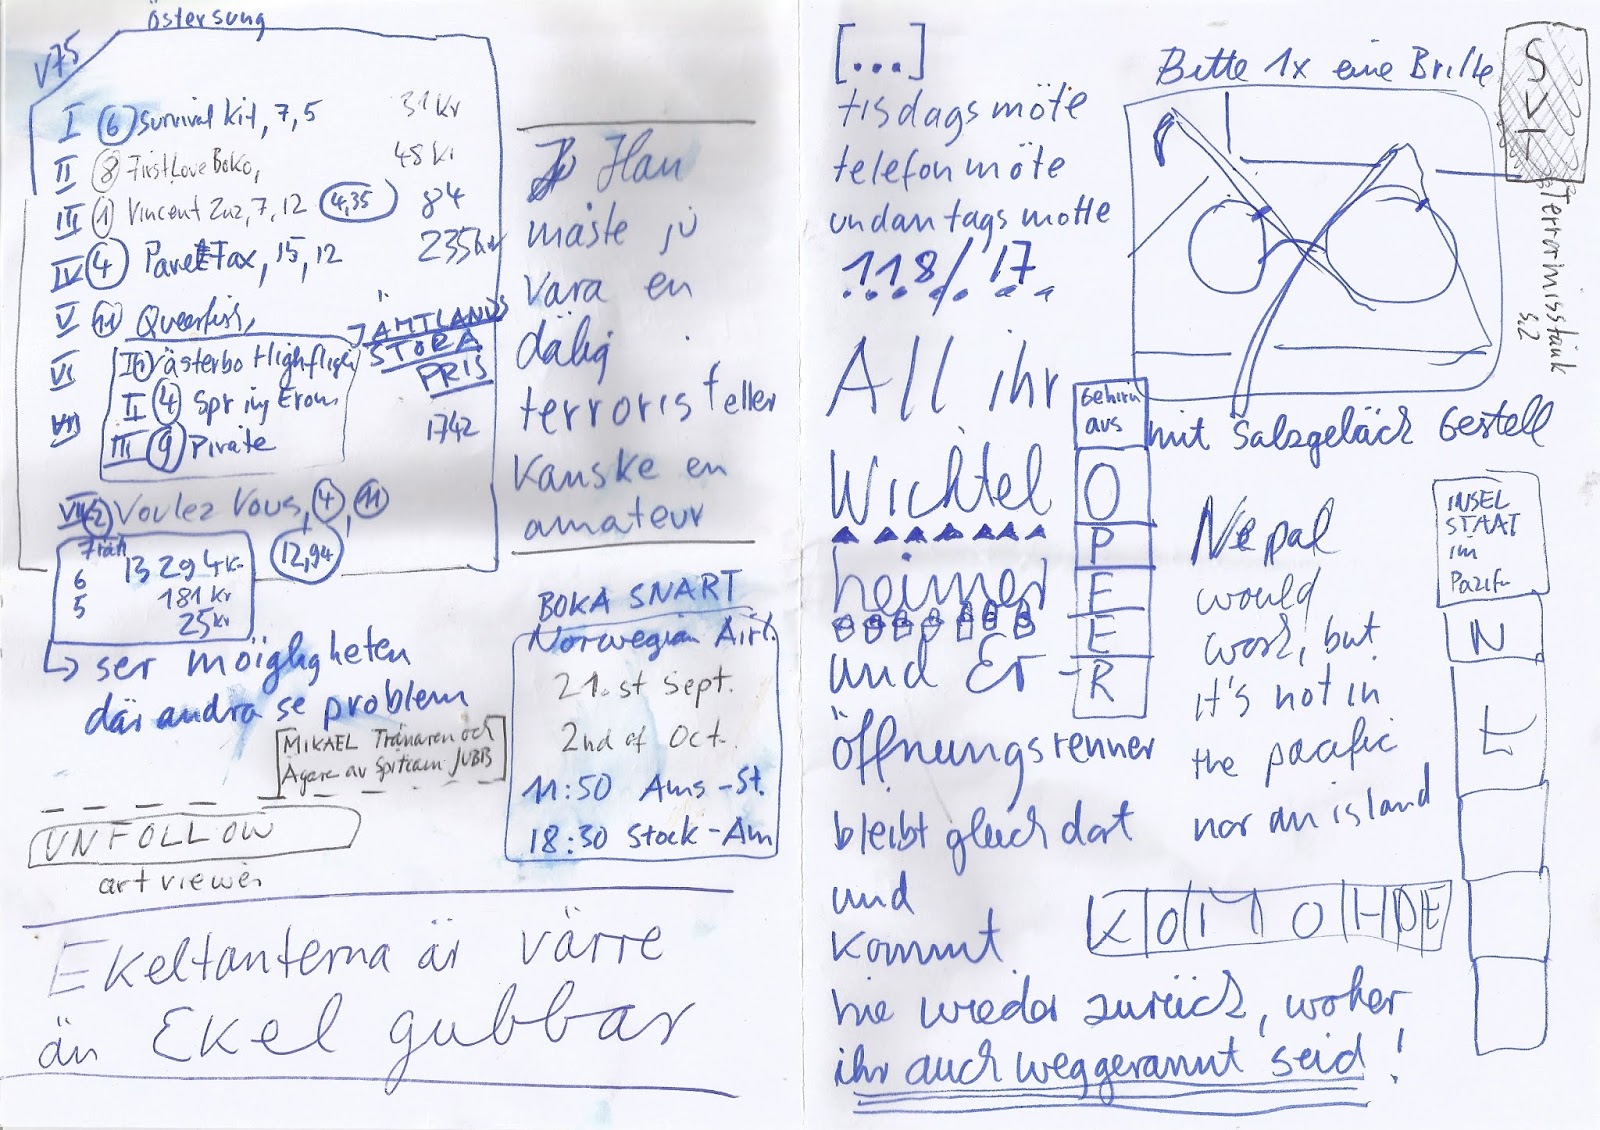 Östersung
V75
I 6 Survival Kit, 7, 5 31 Kr
II 8 First Love Boko, 48 kr
III 1 Vincent Zuz, 7, 12 4,35 84
IV 4 Pavel Fax, 15, 12 235 kr
V 11 Queerfish,
VI
VII
JÄMTLANDS
STORA
PRIS
1742
I Västerbo Highflight
II 4 Spring Erom
III 9 Pirate
VII 2 Voulez Vous, 4, 11
12,94
7 rätt 13 294 kr
6 181 kr
5 25 kr
ser möigligheten
där andra se problem
MIKAEL Tränaren och
Ägare av JUBB
UNFOLLOW
art viewer
Ekeltanterna är värre
än Ekel gubbar
Han
måste ju
vara en
dålig
terrorist eller
kanske en
amateur
BOKA SNART
Norwegian Airl.
21.st Sept.
2nd of Oct.
11:50 Ams-St.
18:30 Stock-Am
[...]
tisdagsmöte
telefonmöte
undantagsmötte
118/17
All ihr
Wichtel
heimer
und Er-
öffnungsrenner
bleibt gleich dort
und
kommt
nie wieder zurück, woher
ihr auch weggerannt seid!
Bitte 1x eine Brille
mit Salzgebäck Gestell
SVT
Terrormisstänk
S.2
Gehirn
aus
O
P
F
E
R
Nepal
would
work, but
it's not in
the pacific
nor an island
INSEL
STAAT
im
Pazifi
N
t
KOMMOHDE